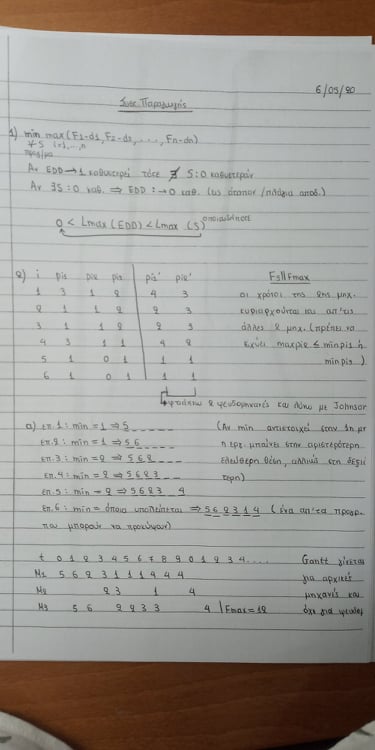 6/05/20
Συσ. Παραγωγής
1) min max(F1-d1, F2-d2, ..., Fn-dn)
∀ S i=1,...,n
Αν EDD → 1 καθυστερεί τότε ∄ S: 0 καθυστερούν
Αν ∃S: 0 καθ. ⇒ EDD: → 0 καθ. (ως άτοπον / πλάγια αποδ.)
0 < Lmax (EDD) < Lmax (S) οποιαδήποτε
2) i pi1 pi2 pi3 pi1' pi2' F3||Fmax
1 3 1 2 4 3 οι χρόνοι της 2ης μηχ.
2 1 1 2 2 3 κυριαρχούνται απ'τις
3 1 1 2 2 3 άλλες 2 μηχ. (πρέπει να
4 3 1 1 4 2 έχουμε maxpi2 ≤ minpi1 ή
5 1 0 1 1 1 minpi3).
6 1 0 1 1 1
φτιάχνω 2 ψευδομηχανές και λύνω με Johnson
α) επ.1: min = 1 ⇒ 5 _ _ _ _ _ (Αν min αντιστοιχεί στην 1η μηχ
επ.2: min = 1 ⇒ 5 6 _ _ _ _ η εργ. μπαίνει στην αριστερότερη
επ.3: min = 2 ⇒ 5 6 2 _ _ _ ελεύθερη θέση, αλλιώς στη δεξιό
επ.4: min = 2 ⇒ 5 6 2 3 _ _ τερη)
επ.5: min = 2 ⇒ 5 6 2 3 _ 4
επ.6: min = όποια υπολείπεται ⇒ 5 6 2 3 1 4 (ένα απ'τα προγρ.
που μπορούν να προκύψουν)
t 0 1 2 3 4 5 6 7 8 9 0 1 2 3 4 .... Gantt γίνεται
M1 5 6 2 3 1 1 1 4 4 4 για αρχικές
M2 2 3 1 4 μηχανές και
M3 5 6 2 2 3 3 4 | Fmax=12 όχι για ψευδο